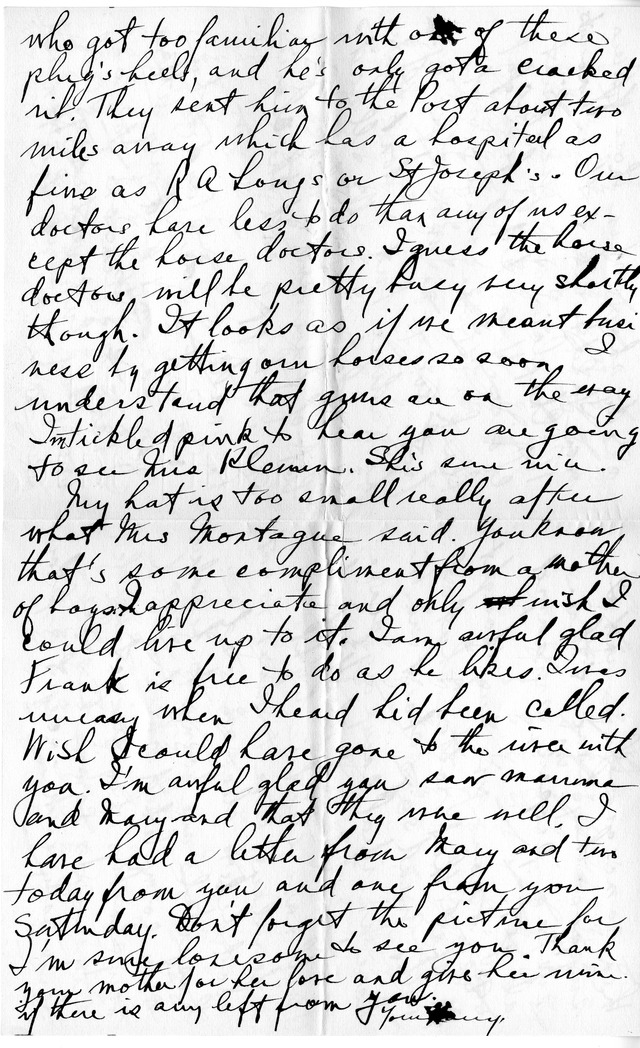 who got too familiar with one of these
plug's heels, and he's only got a cracked
rib. They sent him to the Post about two
miles away which has a hospital as
fine as R A Longs or St Joseph's. Our
doctors have less to do than any of us ex-
cept the horse doctors. I guess the horse
doctors will be pretty busy very shortly
though. It looks as if we meant busi
ness by getting our horses so soon I
understand that guns are on the way
I'm tickled pink to hear you are going
to see Mrs Klemm. She's sure nice.
My hat is too small really after
what Mrs Montague said. You know
that's some compliment from a mother
of boys. I appreciate and only wish I
could live up to it. I am awful glad
Frank is free to do as he likes. I was
uneasy when I heard he'd been called.
Wish I could have gone to the river with
you. I'm awful glad you saw mamma
and Mary and that they were well. I
have had a letter from Mary and two
today from you and one from you
Saturday. Don't forget the picture for
I'm sure lonesome to see you. Thank
your mother for her love and give her mine
if there is any left from you.
Your Harry.